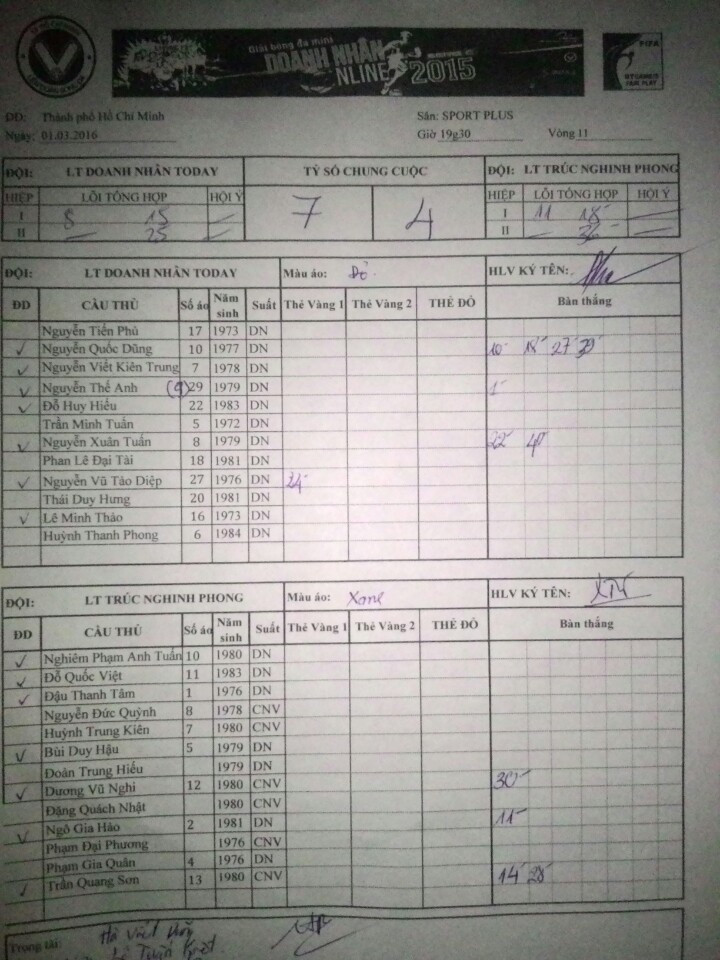 Giải bóng đá mini
DOANH NHÂN
NLINE 2015
FIFA
FAIR PLAY
DĐ: Thành phố Hồ Chí Minh Sân: SPORT PLUS
Ngày: 01.03.2016 Giờ 19g30 Vòng 11
ĐỘI: LT DOANH NHÂN TODAY TỶ SỐ CHUNG CUỘC ĐỘI: LT TRÚC NGHINH PHONG
HIỆP LỖI TỔNG HỢP HỘI Ý 7 4 HIỆP LỖI TỔNG HỢP HỘI Ý
I 8 15 I 11 18
II 25 II 36
ĐỘI: LT DOANH NHÂN TODAY Màu áo: Đỏ HLV KÝ TÊN:
ĐD CẦU THỦ Số áo Năm sinh Suất Thẻ Vàng 1 Thẻ Vàng 2 THẺ ĐỎ Bàn thắng
Nguyễn Tiến Phú 17 1973 DN
✓ Nguyễn Quốc Dũng 10 1977 DN 10' 18' 27' 39'
✓ Nguyễn Viết Kiên Trung 7 1978 DN
✓ Nguyễn Thế Anh (9) 29 1979 DN 1'
✓ Đỗ Huy Hiếu 22 1983 DN
Trần Minh Tuấn 5 1972 DN
✓ Nguyễn Xuân Tuấn 8 1979 DN 22'
Phan Lê Đại Tài 18 1981 DN
✓ Nguyễn Vũ Tảo Diệp 27 1976 DN 24'
Thái Duy Hưng 20 1981 DN
✓ Lê Minh Thảo 16 1973 DN
Huỳnh Thanh Phong 6 1984 DN
ĐỘI: LT TRÚC NGHINH PHONG Màu áo: Xanh HLV KÝ TÊN:
ĐD CẦU THỦ Số áo Năm sinh Suất Thẻ Vàng 1 Thẻ Vàng 2 THẺ ĐỎ Bàn thắng
✓ Nghiêm Phạm Anh Tuấn 10 1980 DN
✓ Đỗ Quốc Việt 11 1983 DN
✓ Đậu Thanh Tâm 1 1976 DN
Nguyễn Đức Quỳnh 8 1978 CNV
Huỳnh Trung Kiên 7 1980 CNV
✓ Bùi Duy Hậu 5 1979 DN
Đoàn Trung Hiếu 1979 DN
✓ Dương Vũ Nghi 12 1980 CNV 30'
Đặng Quách Nhật 1980 CNV
✓ Ngô Gia Hào 2 1981 DN 11'
Phạm Đại Phương 1976 CNV
Phạm Gia Quân 4 1976 DN
✓ Trần Quang Sơn 13 1980 CNV 14' 28'
Trọng tài: Hồ Việt